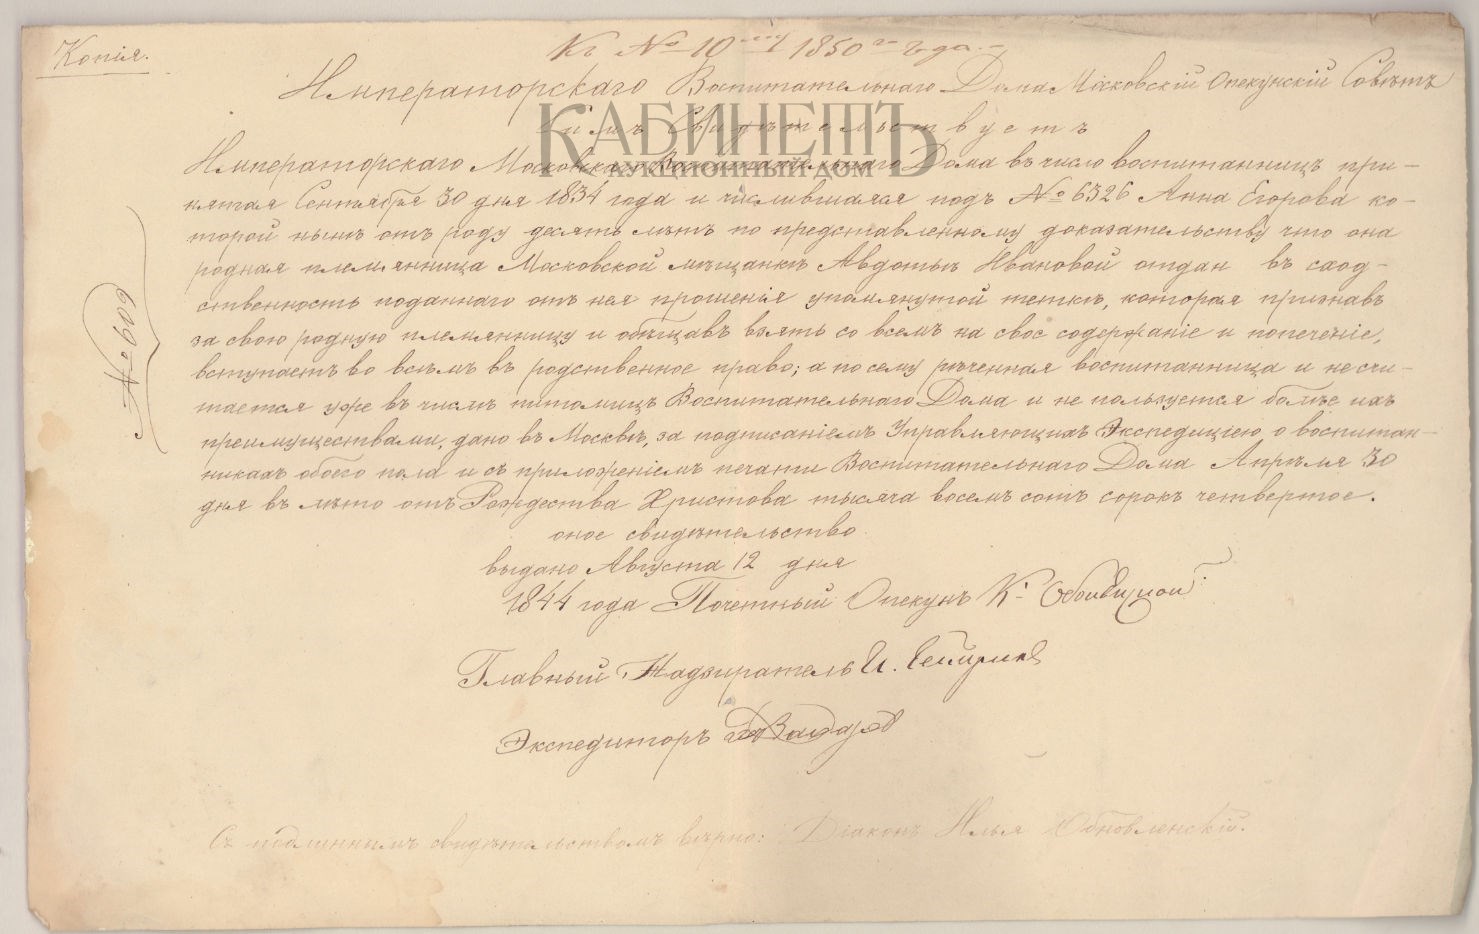 Копія.
Къ № 10му 1850го года.
Императорскаго Воспитательнаго Дома Московскій Опекунскій Совѣтъ
Симъ Свидѣтельствуетъ
КАБИНЕТЪ
АУКЦИОННЫЙ ДОМ
Императорскаго Московскаго Воспитательнаго Дома въ число воспитанницъ при-
нятая Сентября 30 дня 1834 года и числившаяся подъ № 6326 Анна Егорова ко-
торой нынѣ отъ роду десять лѣтъ по представленному доказательству что она
родная племянница Московской мѣщанки Авдотьи Ивановой отдан въ саод-
ственность поданнаго отъ нея прошенія упомянутой теткѣ, которая признавъ
за свою родную племянницу и обѣщавъ взять со всемъ на свое содержаніе и попеченіе,
вступаетъ во всѣмъ въ родственное право; а по сему рѣченная воспитанница и не счи-
тается уже въ числѣ питомицъ Воспитательнаго Дома и не пользуется болѣе ихъ
преимуществами, дано въ Москвѣ, за подписаніемъ Управляющихъ Экспедиціею о воспитан-
никахъ обоего пола и съ приложеніемъ печати Воспитательнаго Дома Апрѣля 30
дня въ лѣто отъ Рождества Христова тысяча восемъ сотъ сорокъ четвертое.
оное свидѣтельство
выдано Августа 12 дня
1844 года Почетный Опекунъ К.
Главный Надзиратель И.
Экспедиторъ
Съ подлиннымъ свидѣтельствомъ вѣрно: Діаконъ Илья Обновленскій.
№ 609